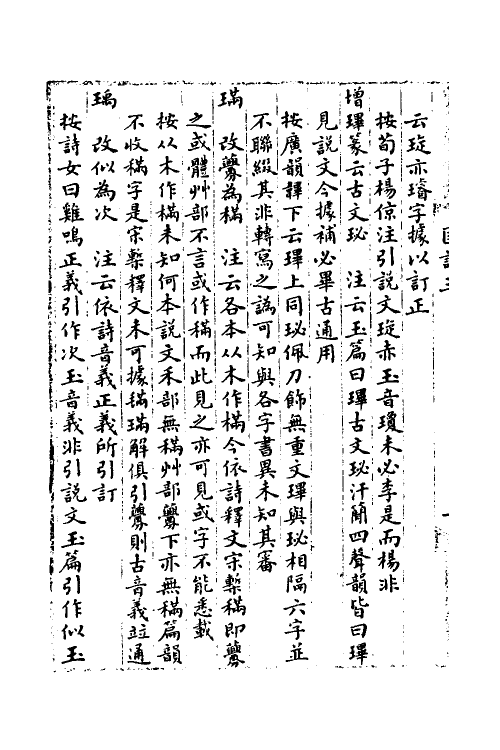 云琁亦璿字據以訂正
按荀子楊倞注引說文琁赤玉音瓊未必李是而楊非
增㻫篆云古文珌　注云玉篇曰㻫古文珌汗簡四聲韻皆曰㻫
見說文今據補必畢古通用
按廣韻㻫下云㻫上同珌佩刀飾無重文㻫與珌相隔六字並
不聯綴其非轉寫之譌可知與各字書異未知其審
璊　改虋為䅼　注云各本从木作樠今依詩釋文宋槧䅼即虋
之或體艸部不言或作䅼而此見之亦可見或字不能悉載
按从木作樠未知何本說文禾部無䅼艸部虋下亦無䅼篇韻
不收䅼字是宋槧釋文未可據𣯩璊解俱引虋則古音義竝通
瑀　改似為次　注云依詩音義正義所引訂
按詩女曰雞鳴正義引作次玉音義非引說文玉篇引作似玉